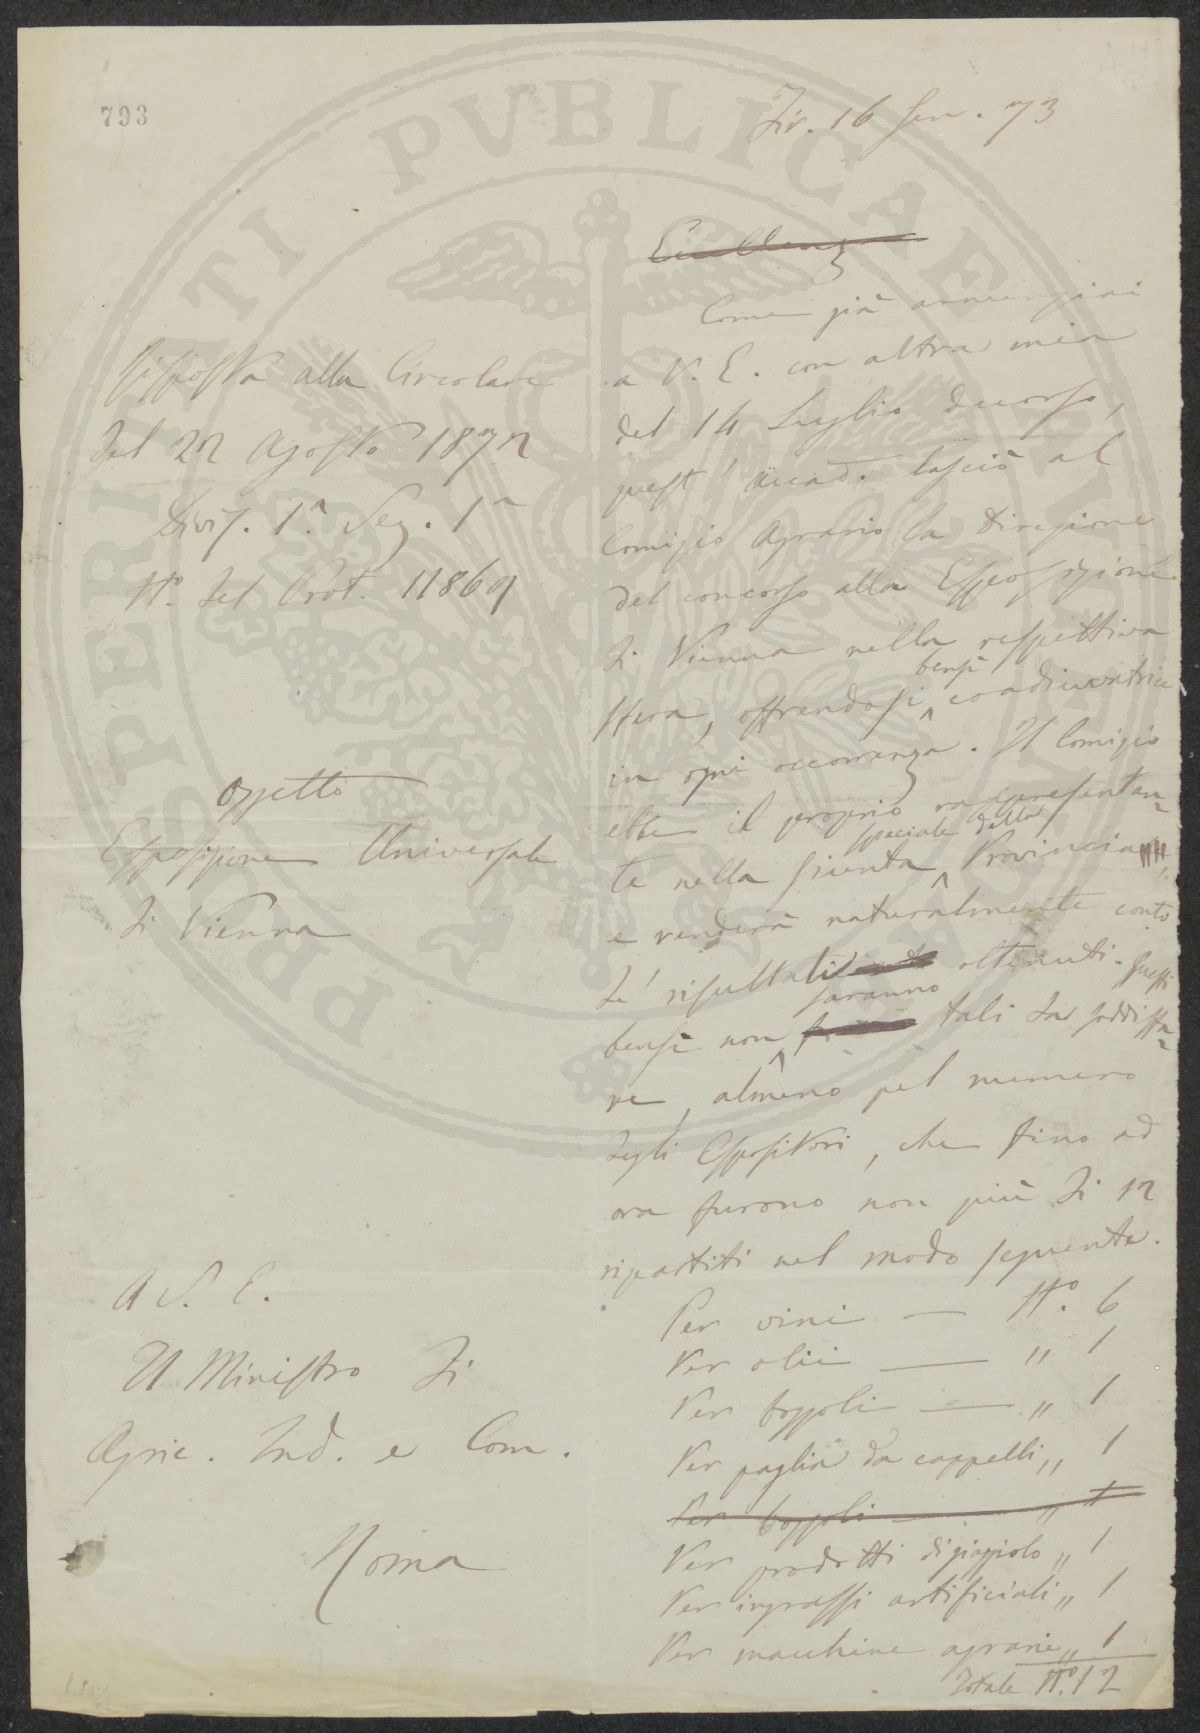 793
Fir. 16 Gen. 73
Eccellenza
Come già annunziai
a V. E. con altra mia
del 14 Luglio decorso,
quest' Accad. lasciò al
Comizio Agrario la direzione
del concorso alla Esposizione
di Vienna nella respettiva
sfera, offrendosi bensì coadiuvatrice
in ogni occorrenza. Il Comizio
ebbe il proprio rappresentan-
te nella Giunta speciale della Provincia,
e renderà naturalmente conto
de' risultati ottenuti. Questi
bensì non saranno tali da soddisfa-
re, almeno pel numero
degli Espositori, che fino ad
ora furono non più di 12
ripartiti nel modo seguente.
Per vini — N.º 6
Per olii — " 1
Per bozzoli — " 1
Per paglia da cappelli " 1
Per bozzoli — " 1
Per prodotti di giaggiolo " 1
Per ingrassi artificiali " 1
Per macchine agrarie " 1
Totale N.º 12
Risposta alla Circolare
del 22 Agosto 1872
Divis. 1.ª Sez. 1ª
N.º del Prot. 11869
Oggetto
Esposizione Universale
di Vienna
A S. E.
Il Ministro di
Agric. Ind. e Com.
Roma
PROSPERITATI PVBLICAE AVGENDAE